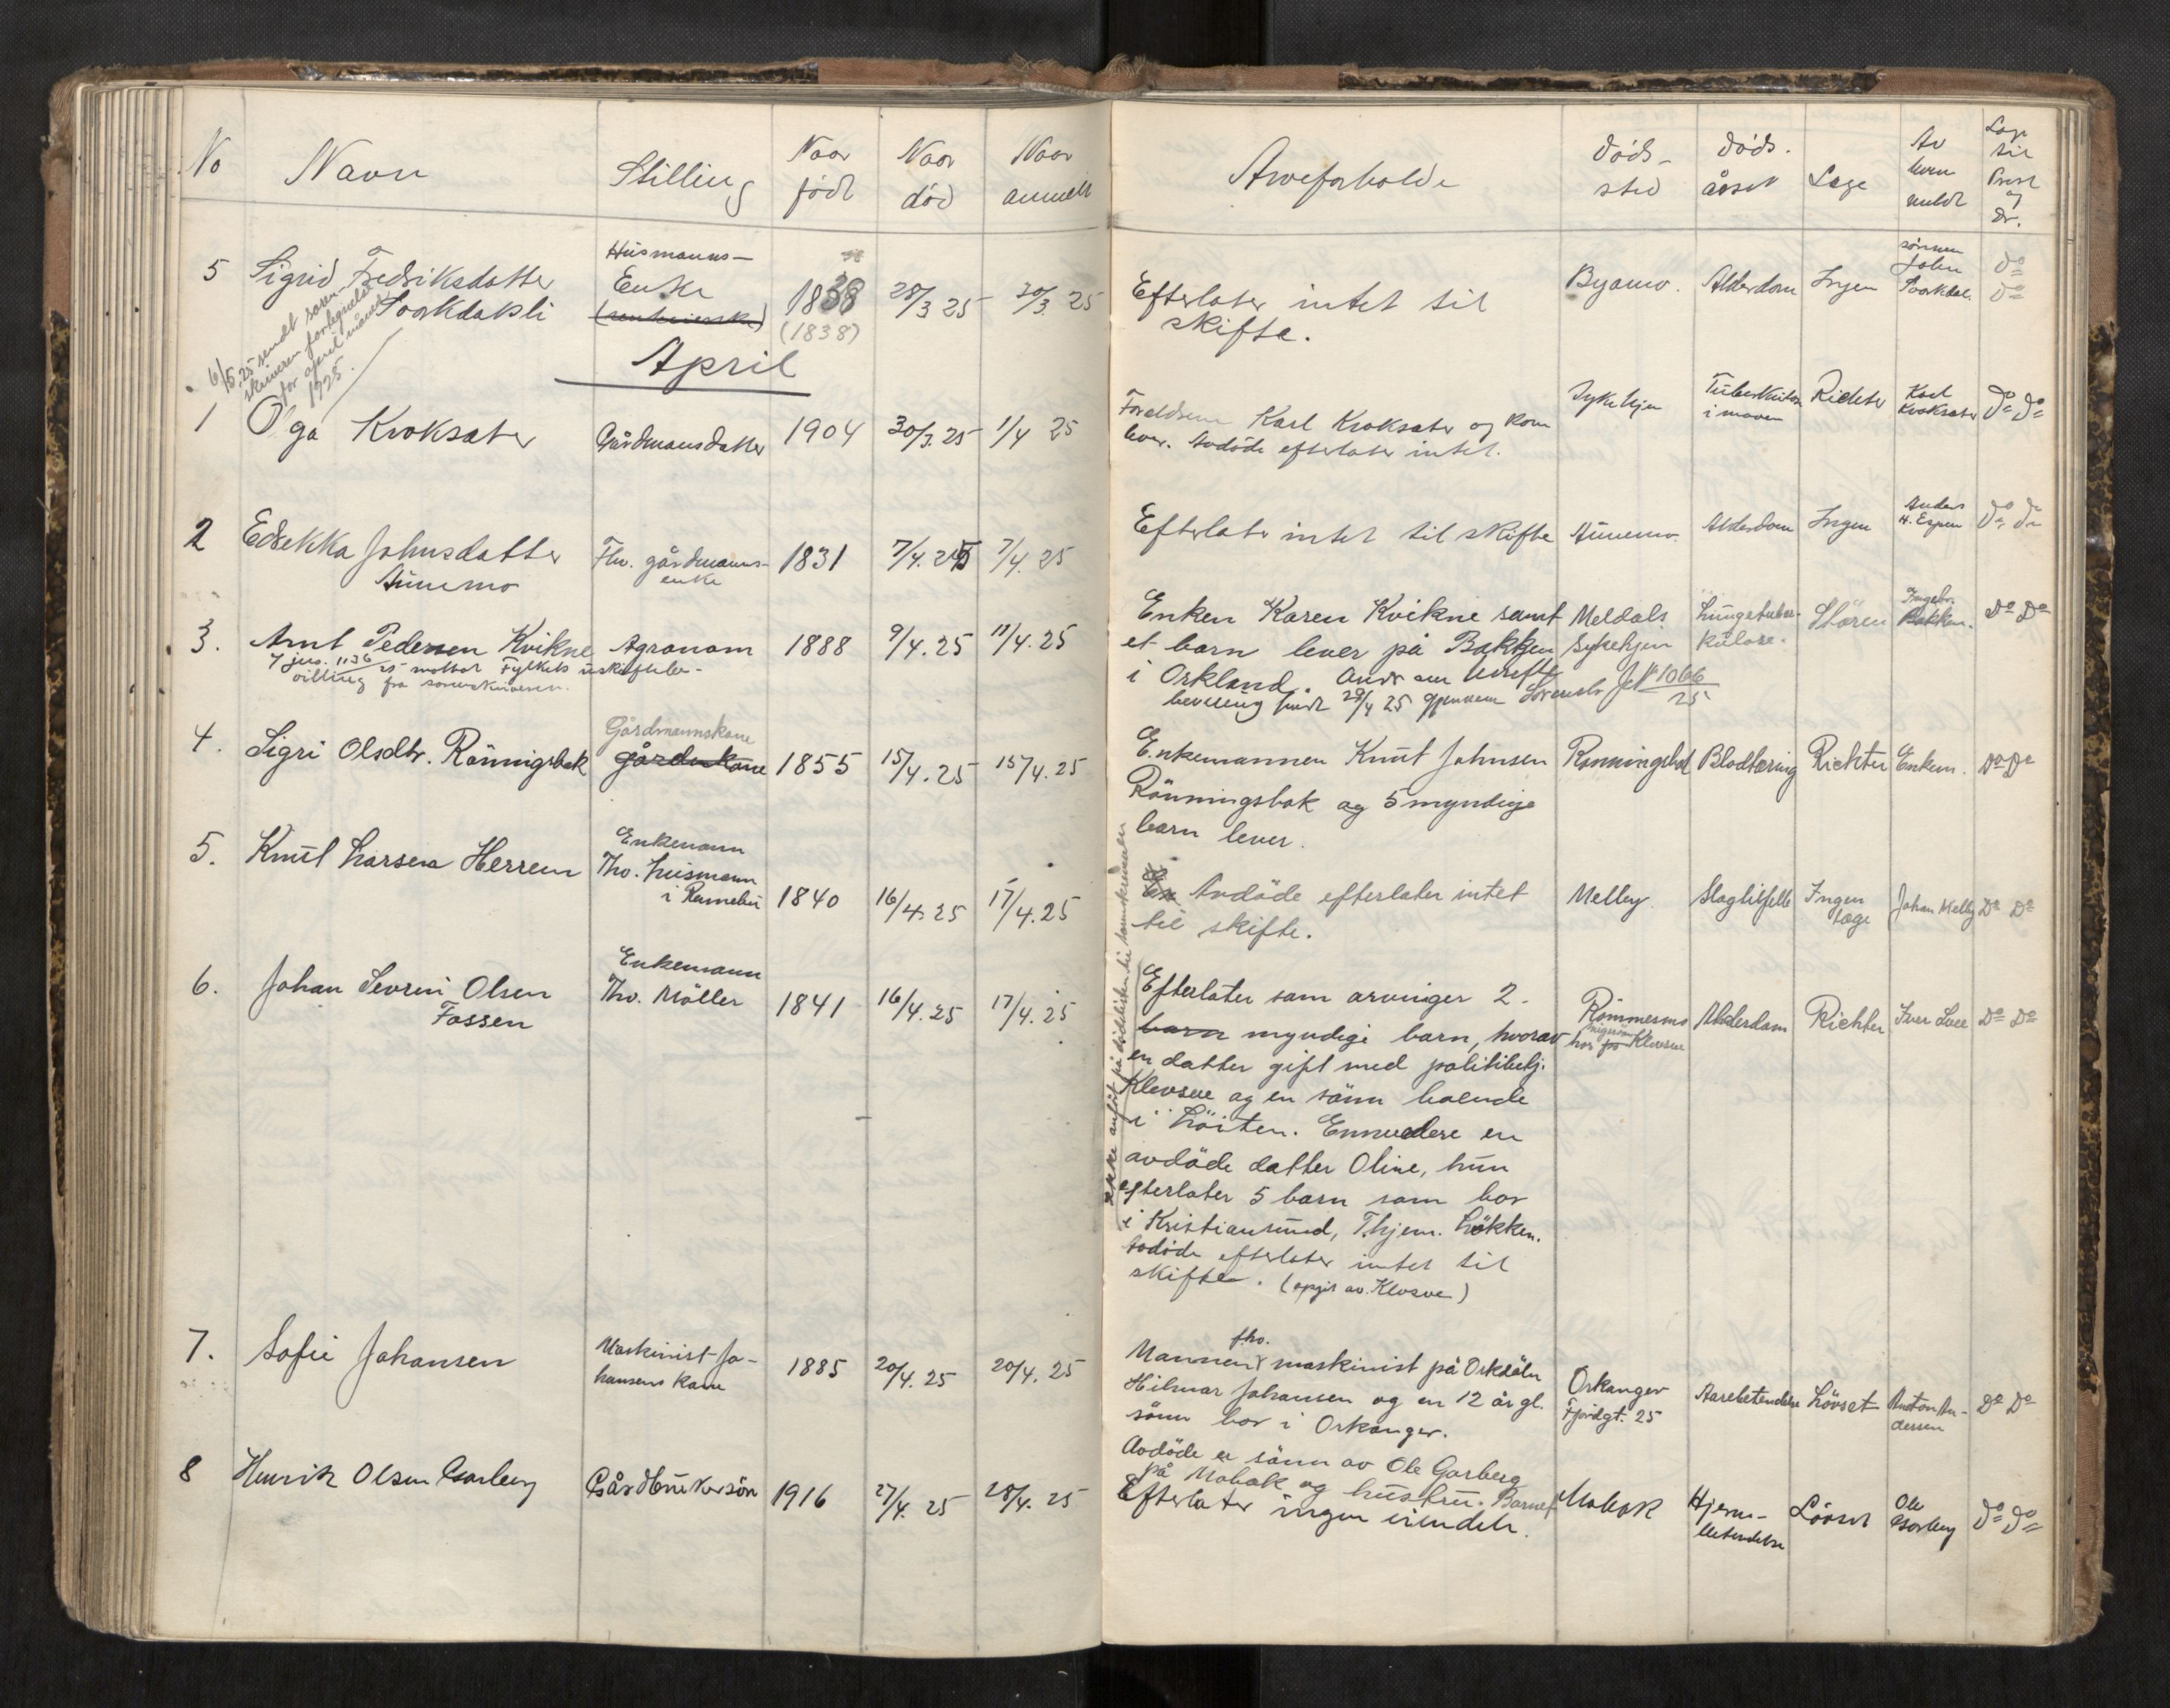 No Navn Stilling Naar født Naar død Naar anmelt Arveforholde døds- sted døds. årsak Læge Av hvem meldt Lap til Prest og Dr.
5 Sigrid Fredriksdatter Husmanns- Enke 1838 28/3 25 30/3 25 Efterlater intet til Byamo. Alderdom Ingen sønnen John do
(1838) skifte. do
6/5.25 sendt soren-
skriveren fortegnelse
for april måned
1925.
April
1 Olga Kroksæter Gårdmansdatter 1904 30/3.25 1/4 25 Foreldrene Karl Kroksæter og kone Sykehjem Tuberkulose Richter Karl Kroksæter do do
lever. Avdöde efterlater intet. i maven
2 Edrekka Johnsdatter Fhv. gårdmanns- 1831 7/4.25 7/4.25 Efterlater intet til skifte Aunemo. Alderdom Ingen Anders H. Espen do do
Aunemo enke
3. Arnt Pedersen Kvikne Agronom 1888 9/4.25 11/4.25 Enken Karen Kvikne samt Meldals Lungetuber- Støren Ingebr. Bakken. Do Do
7 jno. 1136/25 mottat Fylkets uskiftebe- et barn lever på Bakken Sykehjem kulose.
villing fra sorenskriveren. i Orkland. Andr om uskifte
bevilling sendt 29/4 25 gjennem Sorenskr JN 1066/25
4. Sigri Olsdtr. Rönningsbak Gårdmannskone 1855 15/4.25 15/4.25 Enkemannen Knut Johnsen Rönningsbak Blodtæring Richter Enkem. Do Do
Rönningsbak og 5 myndige
barn lever.
5. Knut Larsen Herrem Enkemann
Fhv. husmann
i Rennebu 1840 16/4.25 17/4.25 Avdöde efterlater intet Melby. Slagtilfelle Ingen læge Johan Melby Do Do
til skifte.
6. Johan Sevrin Olsen Enkemann
Fossen Fhv. Möller 1841 16/4.25 17/4.25 Efterlater som arvinger 2 Rømmesmo Alderdom Richter Iver Lee Do Do
barn myndige barn, hvorav hos Klevsve
en datter gift med politibetj.
Klevsve og en sönn boende
i Löiten. Ennvidere en
avdöde datter Oline, hun
efterlater 5 barn som bor
i Kristiansund, T.hjem. Lökken.
Avdöde efterlater intet til
skifte. (opgit av Klevsve)
Ikke anfört på dödslisten til sorenskriveren
7. Sofie Johansen Maskinist Jo- 1885 20/4.25 20/4.25 Mannen fhv. maskinist på Orkdöln Orkanger Aarebetendelse Lövset Anton An- Do Do
hansens kone Hilmar Johansen og en 12 år gl. Fjordgt. 25 dersen
sönn bor i Orkanger.
8 Henrik Olsen Garberg Gårdbrukersön 1916 27/4.25 28/4.25 Avdöde er sönn av Ole Garberg Mobak Hjerne- Lövset Ole Garberg do do
på Mobak og hustru. Barnet betendelse
Efterlater ingen eiendele.